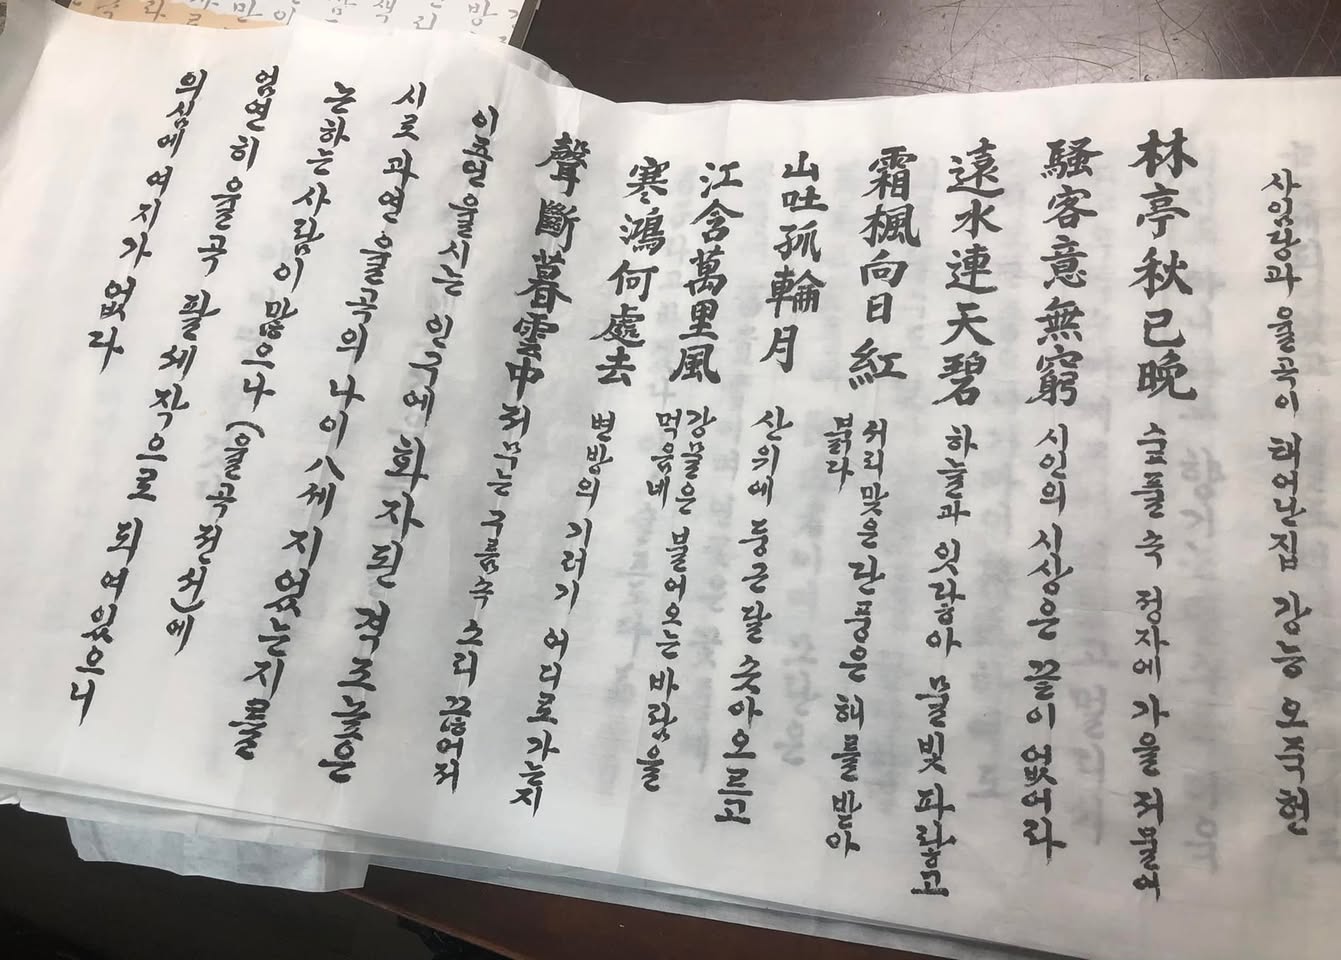 사임당과 율곡이 태어난집 강능 오죽헌
林亭秋已晩 숲들 속 정자에 가을 저물오
騷客意無窮 시인의 시상은 끝이 없어라
遠水連天碧 하늘과 잇닿아 물빛 파랗고
霜楓向日紅 서리맞은 단풍은 해를 받아 붉다
山吐孤輪月 산위에 둥근 달 솟아오르고
江含萬里風 강물은 불어오는 바람을 먹음네
寒鴻何處去 변방의 기러기 어디로가는지
聲斷暮雲中 저무는 구름속 소리 끊어져
이 율시는 인구에 회자된 격조높은
시로 과연 율곡의 나이 八세 지었는지를
논하는 사람이 많으나 (율곡전서)에
엄연히 율곡 팔세작으로 되여있으니
의심에 여지가 없다